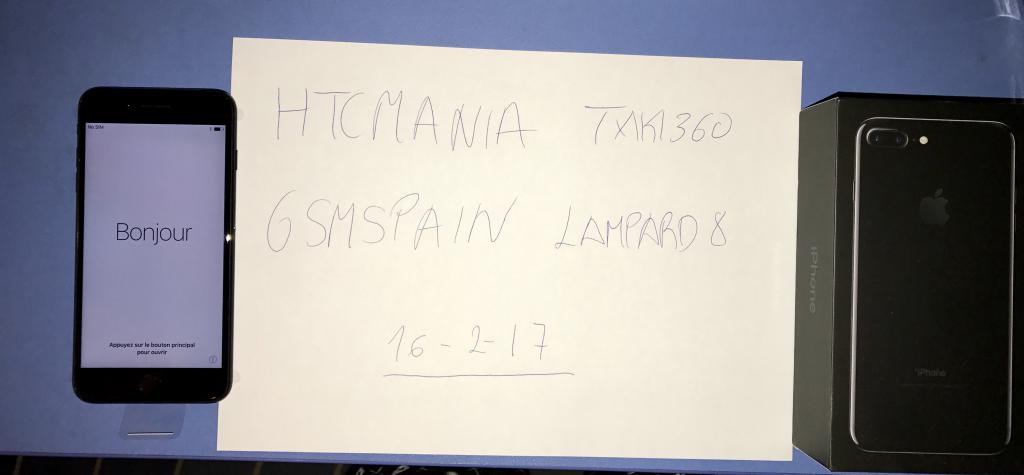 No SIM
Bonjour
Appuyez sur le bouton principal
pour ouvrir
HTCMANIA TXIKI360
GSMSPAIN LAMPARD8
16-2-17
iPhone
iPhone